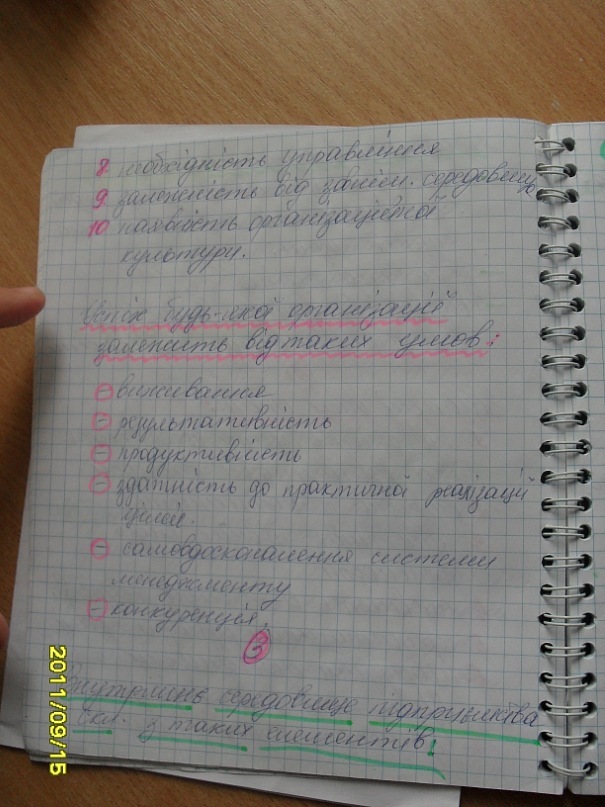 8 необхідність управління
9 залежність від зовніш. середовищ
10 наявність організаційної
культури.
Успіх будь-якої організації
залежить від таких умов:
- виживання
- результативність
- продуктивність
- здатність до практичної реалізації
цілей.
- самовдосконалення системи
менеджменту
- конкуренція.
3
Внутрішнє середовище підприємства
скл. з таких елементів:
2011/09/15